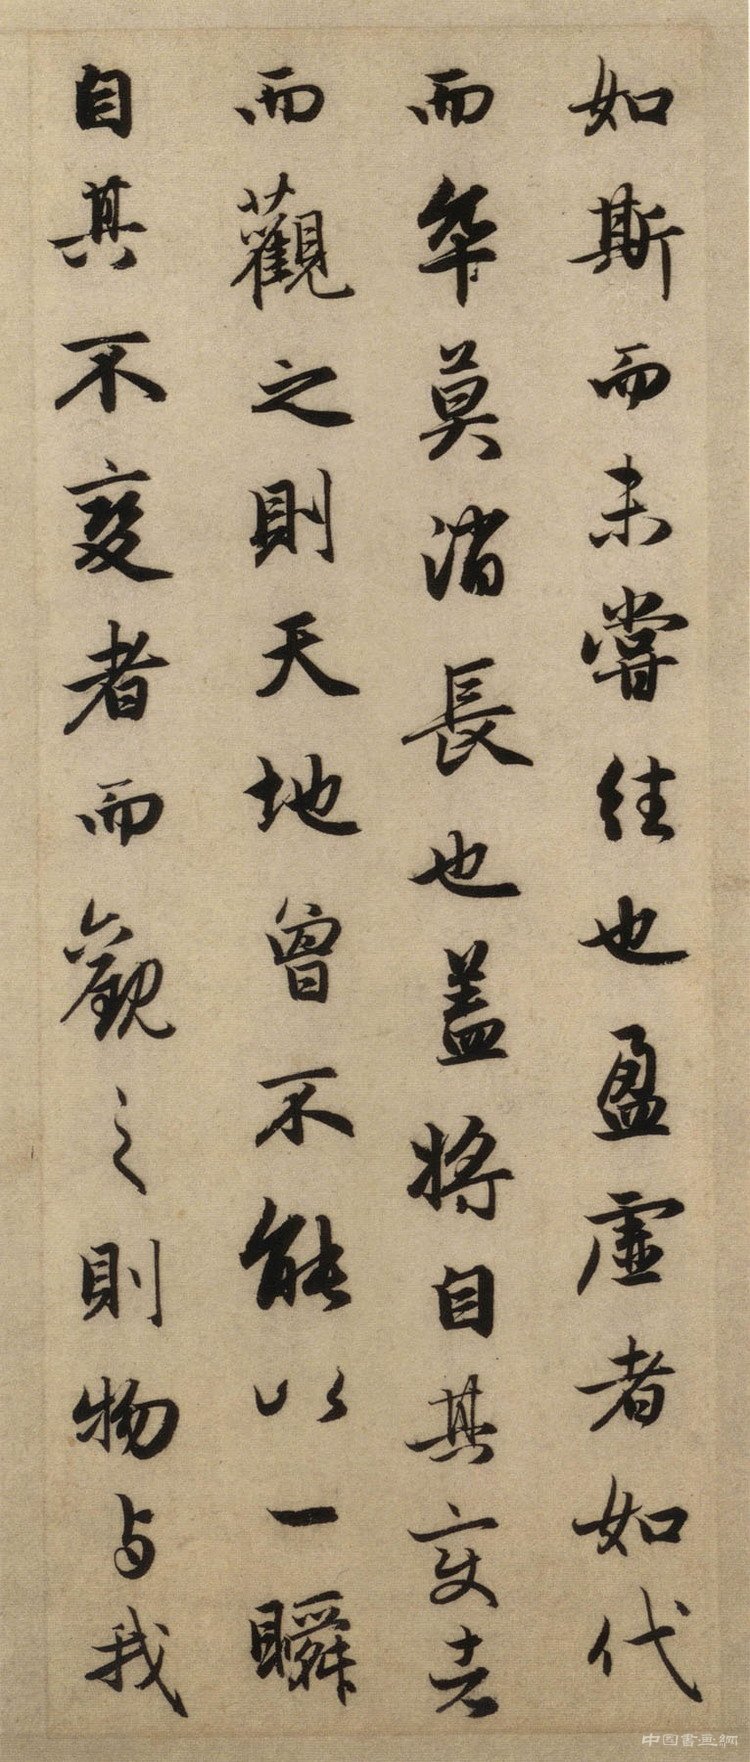 如斯而未嘗往也盈虛者如代
而卒莫消長也蓋將自其變者
而觀之則天地曾不能以一瞬
自其不變者而觀之則物与我
中国書画網